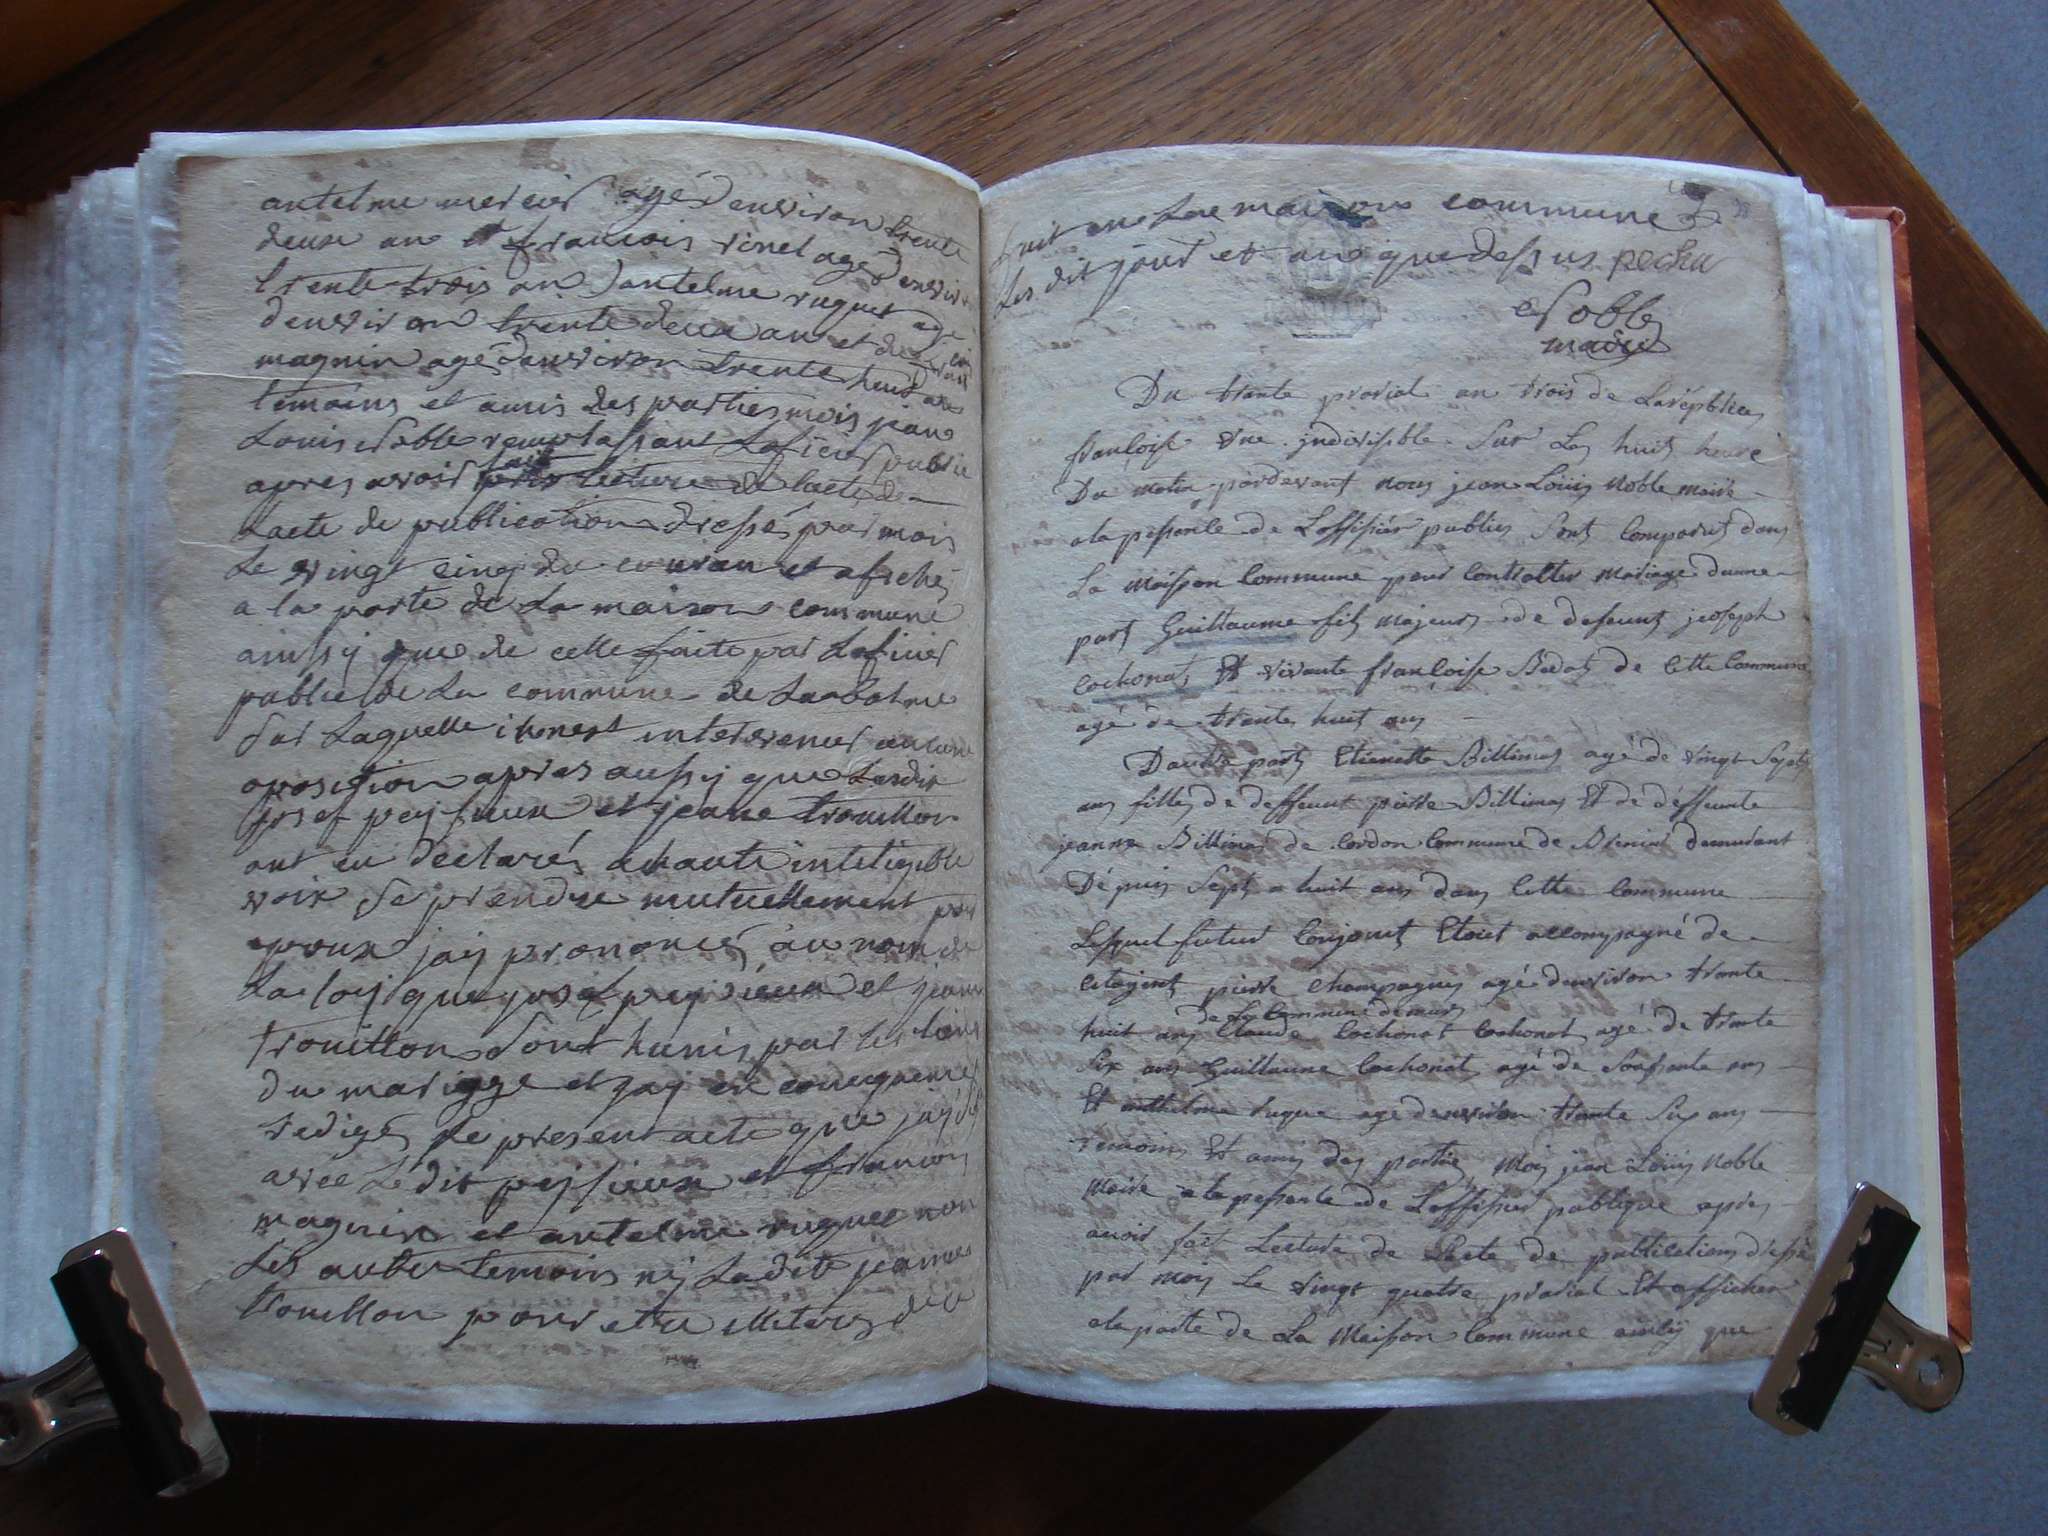 antelme mercier agé denviron trente
deux an et francois vinet agé denviron
trente trois an antelme ruguet agé
denviron trente deux an et
magnin agé denviron trente huit ans
temoins et amis des parties mois jean
Louis Noble remplassant Lofficier public
apres avoir fait lecture de lacte de
Lacte de publication dressé par mois
Le vingt cinq du couran et afiché
a la porte de La maison commune
ainssy que de celle faite par Lofficier
public de La commune de La balme
sur Laquelle il nest intervenue aucune
oposition apres aussy que Lesdit
josef peysieux et jeane trouillon
ont eu declarés a haute inteligible
voix se prendre mutuellement pour
epoux jay prononcés au nom de
La loy que josef peysieux et jeane
trouillon sont hunis par les liens
du mariage et jay en consequence
redigés le present acte que jay
avec Ledit peysieux et francois
magnin et antelme ruguet non
Les autres temoins ny Ladite jeanne
trouillon pour etre illiteres de ce
fait en La maison commune
Les dit jour et an que dessus pochu
Noble
maire
Du trante prerial an trois de La republique
francoise une indivisible sur Les huit heure
Du matin pardevant nous jean Loüis Noble maire
a la pessante de Loffisier publicq sont comparut dans
La maison commune pour contracter mariage dune
part Guillaume fils majeur de defeunt joseph
Cochonat Et vivante francoise Bodot de cette commune
agé de trante huit ans
Dautre part Etienette Billimas agé de vingt sept
ans fille de deffeunt pierre Billimas Et de deffeunte
jeanne Billimas de Cordon Commune de Brenier demeurant
Dépuis sept a huit ans dans cette commune
Lesquel futur Conjoint Etoict accompagné de
citoyent pierre Champagne agé denviron trante
de La commune de murs
huit ans Claude Cochonat Cochonat agé de trante
six ans Guillaume Cochonat agé de soissante ans
Et anthelme ruque agé denviron trante six ans
Temoins Et amis des partie moy jean Loüis Noble
maire a la pessante de Loffisier publique apres
avoir fait Lecture de Lacte de publications dressé
par moy Le vingt quatre prerial Et afficher
a la porte de La Maison Commune ainsy que